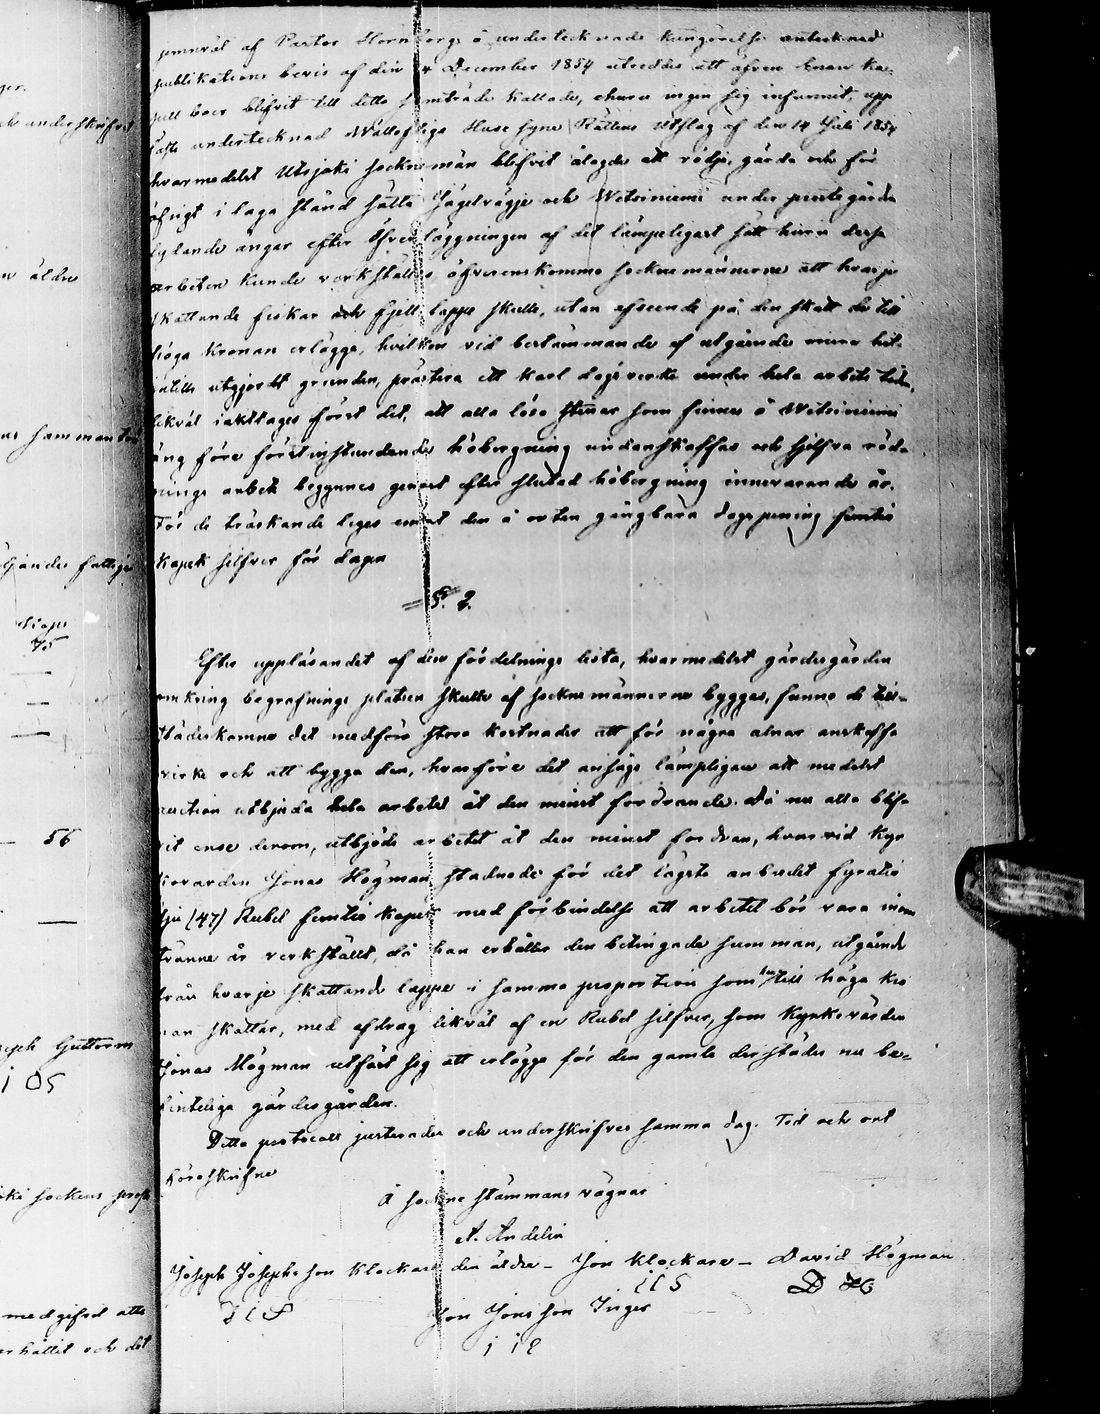 jemväl af Pastor Hornborgs å undertecknade kungörelse antecknad
publikations bevis af den 4 December 1854 utreddes att äfven Enare
fjell boer blifvit till detta sammanträde kallade, ehuru ingen sig infunnit, upp
lästes undertecknad Wällofliga Huse syne Rättens Utslag af den 14 Juli 1854
hvarmedelst Utsjoki sockne män blifvit ålagde att rödja, gärda och för
öfrigt i laga stånd sätta Jägelvägje och Wetsiniemi under prestegården
lydande ängar efter öfverläggningen af det lämpeligast sätt huru dessa
arbeten kunde verkställas, öfverenskommo sockne männerne att hvarje
skattande fiskar och fjell lappe skulle, utan afseende på den skatt de till
höga Kronan erlägga, hvilken vid bestämmande af utgående mera hit-
intills utgjordt grunden, prästera ett karl dagsverke under hela arbets tiden,
likväl iakttages först det, att alla lösa stenar som finnes å Wetsiniemi
äng före förstinstundande höbergning undanskaffas och sjelfva röd-
nings arbete begynnes genast efter slutad höbergning innevarande år.
För de träskande leges emot den å orten gångbara dagspening femtio
kopek silfver för dagen
§. 2.
Efter uppläsandet af den fördelnings lista, hvarmedelst gärdesgården
omkring begrafnings platsen skulle af socknemännerne byggas, funno de till-
städeskomne det medföra stora kostnader att för några alnar anskaffa
virke och att bygga den, hvarföre det ansågs lämpligare att medelst
auction utbjuda hela arbetet åt den minst fordrande. Då nu alla blif-
vit ense derom, utbjöds arbetet åt den minst fordran, hvarvid Kyr
kovärden Jonas Högman stadnade för det lägsta anbudet fyratio
sju (47) Rubel femtio kopek med förbindelse att arbetet bör vara inom
tvänne år verkställt, då han erhåller den betingade summan, utgående
från hvarje skattande lappe i samma proportion som han till höga Kro
nan skattar, med afdrag likväl af en Rubel silfver, som Kyrkovärden
Jonas Högman utfäst sig att erlägga för den gamla derstädes nu be-
finteliga gärdesgården.
Detta protocoll justerades och underskrifves samma dag. Tid och ort
föreskrifne
Å sockne stämmans vägnar
A. Andelin
Joseph Josephs son Klockare den äldre – Jon Klockare – David Högman
J I S
i i S
D H
Jon Jons son Inger
i i E
och underskrifvit
n äldre
ns samman
följande fattige
Kopek
75
56
Joseph Guttorm
i O S
oki sockens
medgifvet att
erhållit och det